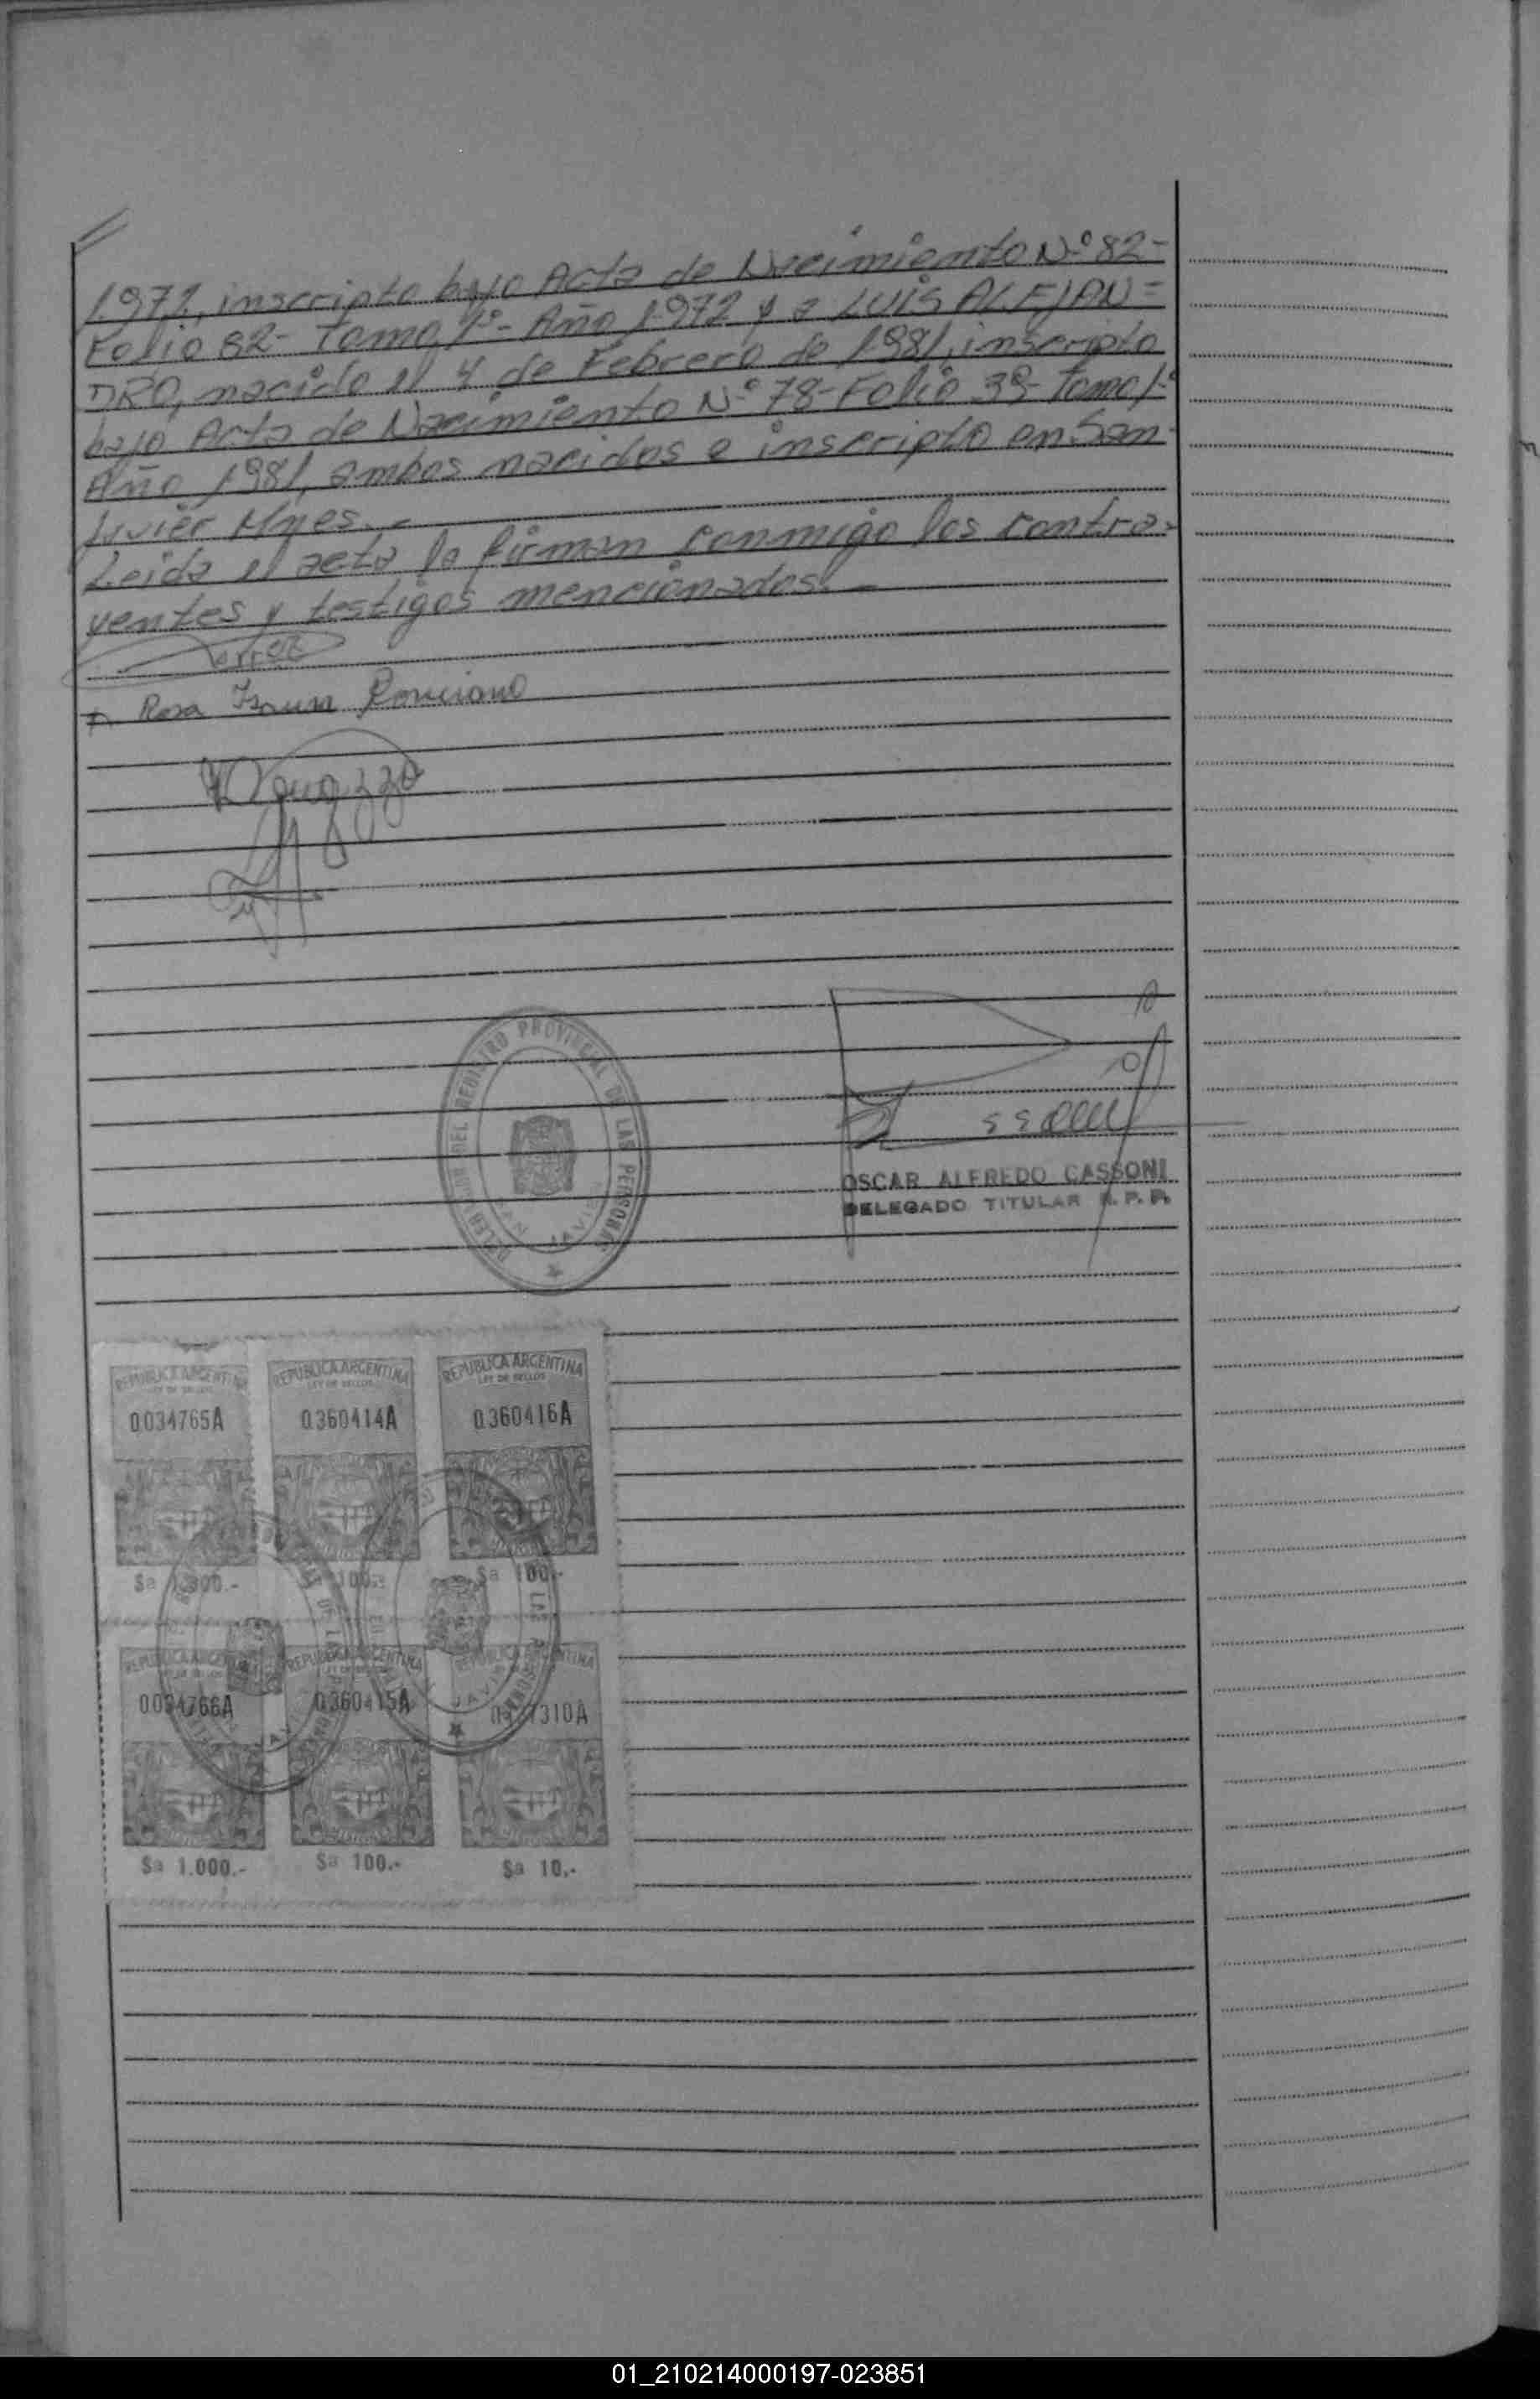 1.971, inscripto bajo Acta de Nacimiento Nº 82-
Folio 82- Tomo 1º- Año 1.972 y a LUIS ALEJAN=
DRO, nacido el 4 de Febrero de 1.981, inscripto
bajo Acta de Nacimiento Nº 78- Folio 39- Tomo 1º
Año 1.981, ambos nacidos e inscripto en San
Javier Mnes.-
Leida el acta la firman conmigo los contra-
yentes y testigos mencionados.-
Rosa Isaura
DEL REGISTRO PROVINCIAL DE LAS PERSONAS
SAN JAVIER
OSCAR ALFREDO CASSONI
DELEGADO TITULAR R. P. P.
REPUBLICA ARGENTINA
LEY DE SELLOS
0.034765A
$a 1.000.-
REPUBLICA ARGENTINA
LEY DE SELLOS
0.360414A
$a 100.-
REPUBLICA ARGENTINA
LEY DE SELLOS
0.360416A
$a 100.-
REPUBLICA ARGENTINA
0.034766A
$a 1.000.-
REPUBLICA ARGENTINA
0.360415A
$a 100.-
REPUBLICA ARGENTINA
310A
$a 10.-
JAVIER
01_210214000197-023851